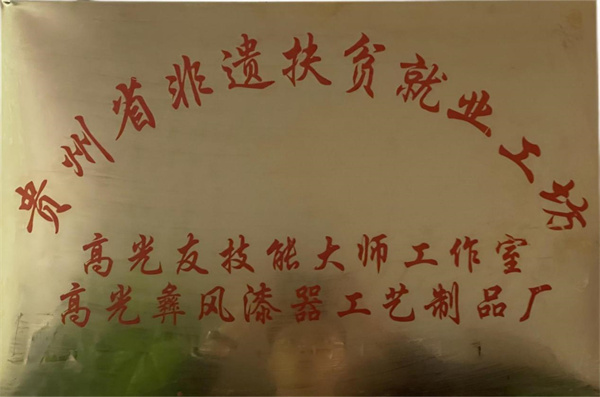 贵州省非遗扶贫就业工坊
高光友技能大师工作室
高光彝风漆器工艺制品厂